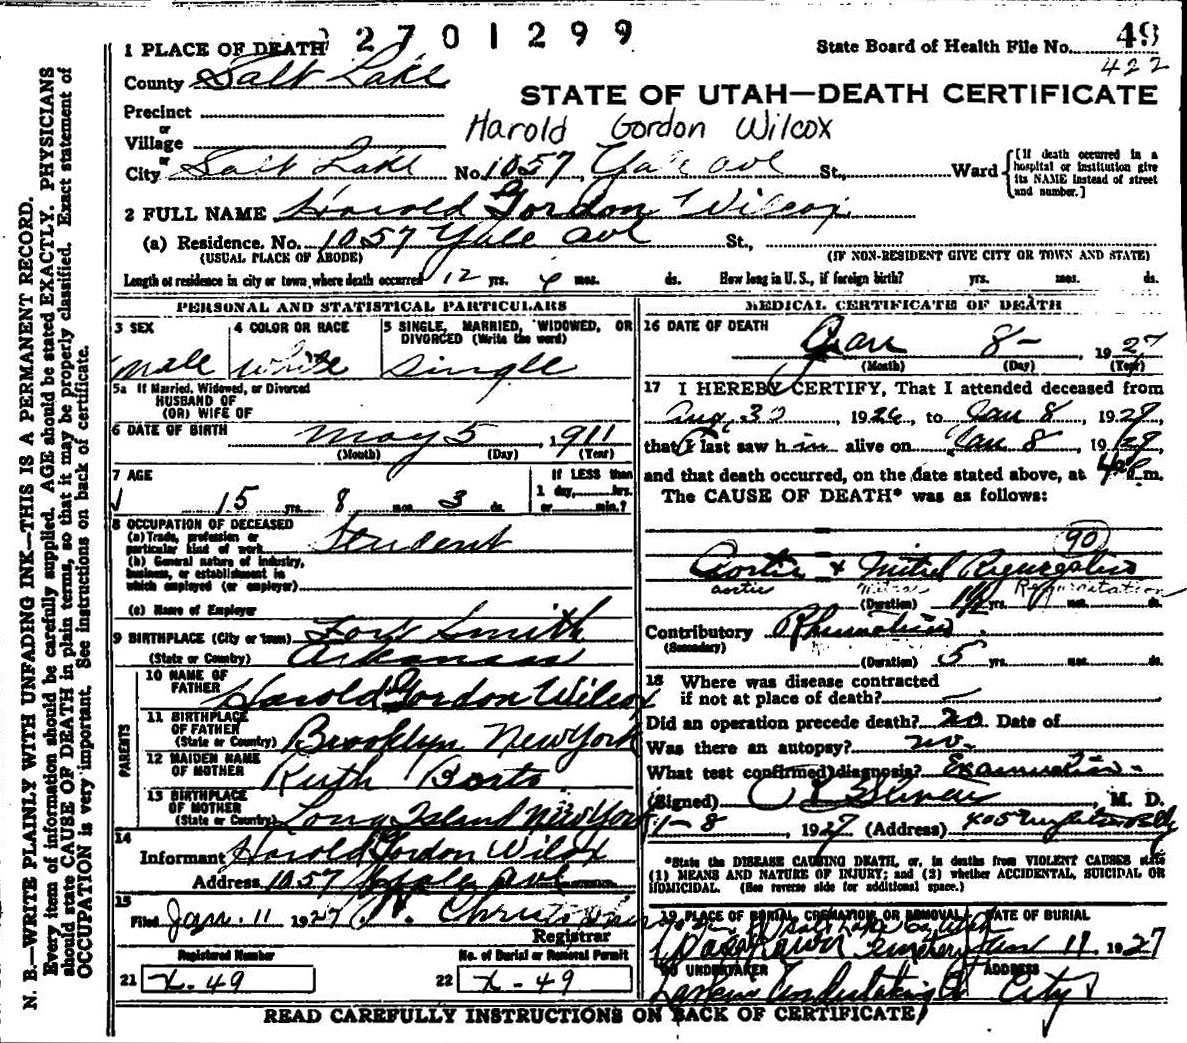 2701299
1 PLACE OF DEATH
State Board of Health File No. 49
422
County Salt Lake
STATE OF UTAH—DEATH CERTIFICATE
Precinct
or
Village
Harold Gordon Wilcox
or
City Salt Lake No. 1057 Yale Ave St., Ward
[If death occurred in a hospital or institution give its NAME instead of street and number.]
2 FULL NAME Harold Gordon Wilcox
(a) Residence. No. 1057 Yale Ave St.,
(USUAL PLACE OF ABODE) (IF NON-RESIDENT GIVE CITY OR TOWN AND STATE)
Length of residence in city or town where death occurred 12 yrs. mos. ds. How long in U. S., if foreign birth? yrs. mos. ds.
PERSONAL AND STATISTICAL PARTICULARS
3 SEX
male
4 COLOR OR RACE
white
5 SINGLE, MARRIED, WIDOWED, OR DIVORCED (Write the word)
single
5a If Married, Widowed, or Divorced
HUSBAND OF
(OR) WIFE OF
6 DATE OF BIRTH May 5, 1911
(Month) (Day) (Year)
7 AGE
15 yrs. 8 mos. 3 ds.
If LESS than
1 day, hrs.
or min.?
8 OCCUPATION OF DECEASED
(a) Trade, profession or
particular kind of work Student
(b) General nature of industry,
business, or establishment in
which employed (or employer)
(c) Name of Employer
9 BIRTHPLACE (City or town) Fort Smith
(State or Country) Arkansas
PARENTS
10 NAME OF FATHER Harold Gordon Wilcox
11 BIRTHPLACE OF FATHER
(State or Country) Brooklyn New York
12 MAIDEN NAME OF MOTHER Ruth Borts
13 BIRTHPLACE OF MOTHER
(State or Country) Long Island New York
14
Informant Harold Gordon Wilcox
Address 1057 Yale Ave
15
Filed Jan. 11 1927
Registrar
Registered Number
21 X-49
No. of Burial or Removal Permit
22 X-49
MEDICAL CERTIFICATE OF DEATH
16 DATE OF DEATH
Jan 8- , 1927
(Month) (Day) (Year)
17 I HEREBY CERTIFY, That I attended deceased from
Aug. 1926, to Jan 8, 1927,
that I last saw him alive on Jan 8 1927,
and that death occurred, on the date stated above, at m.
The CAUSE OF DEATH* was as follows:
90
Aortic & Mitral Regurgitation
aortic mitral Regurgitation
(Duration) yrs. mos. ds.
Contributory Rheumatism
(Secondary)
(Duration) 5 yrs. mos. ds.
18 Where was disease contracted
if not at place of death?
Did an operation precede death? no Date of
Was there an autopsy? no.
What test confirmed diagnosis? Examination-
(Signed) , M. D.
1-8, 1927 (Address) 405
*State the DISEASE CAUSING DEATH, or, in deaths from VIOLENT CAUSES state
(1) MEANS AND NATURE OF INJURY; and (2) whether ACCIDENTAL, SUICIDAL OR
HOMICIDAL. (See reverse side for additional space.)
19 PLACE OF BURIAL, CREMATION OR REMOVAL DATE OF BURIAL
Salt Lake Co, Utah
Cemetery Jan 11 1927
20 UNDERTAKER ADDRESS
Larkin Undertaking Co City
READ CAREFULLY INSTRUCTIONS ON BACK OF CERTIFICATE
N. B.—WRITE PLAINLY WITH UNFADING INK—THIS IS A PERMANENT RECORD.
Every item of information should be carefully supplied. AGE should be stated EXACTLY. PHYSICIANS
should state CAUSE OF DEATH in plain terms, so that it may be properly classified. Exact statement of
OCCUPATION is very important. See instructions on back of certificate.